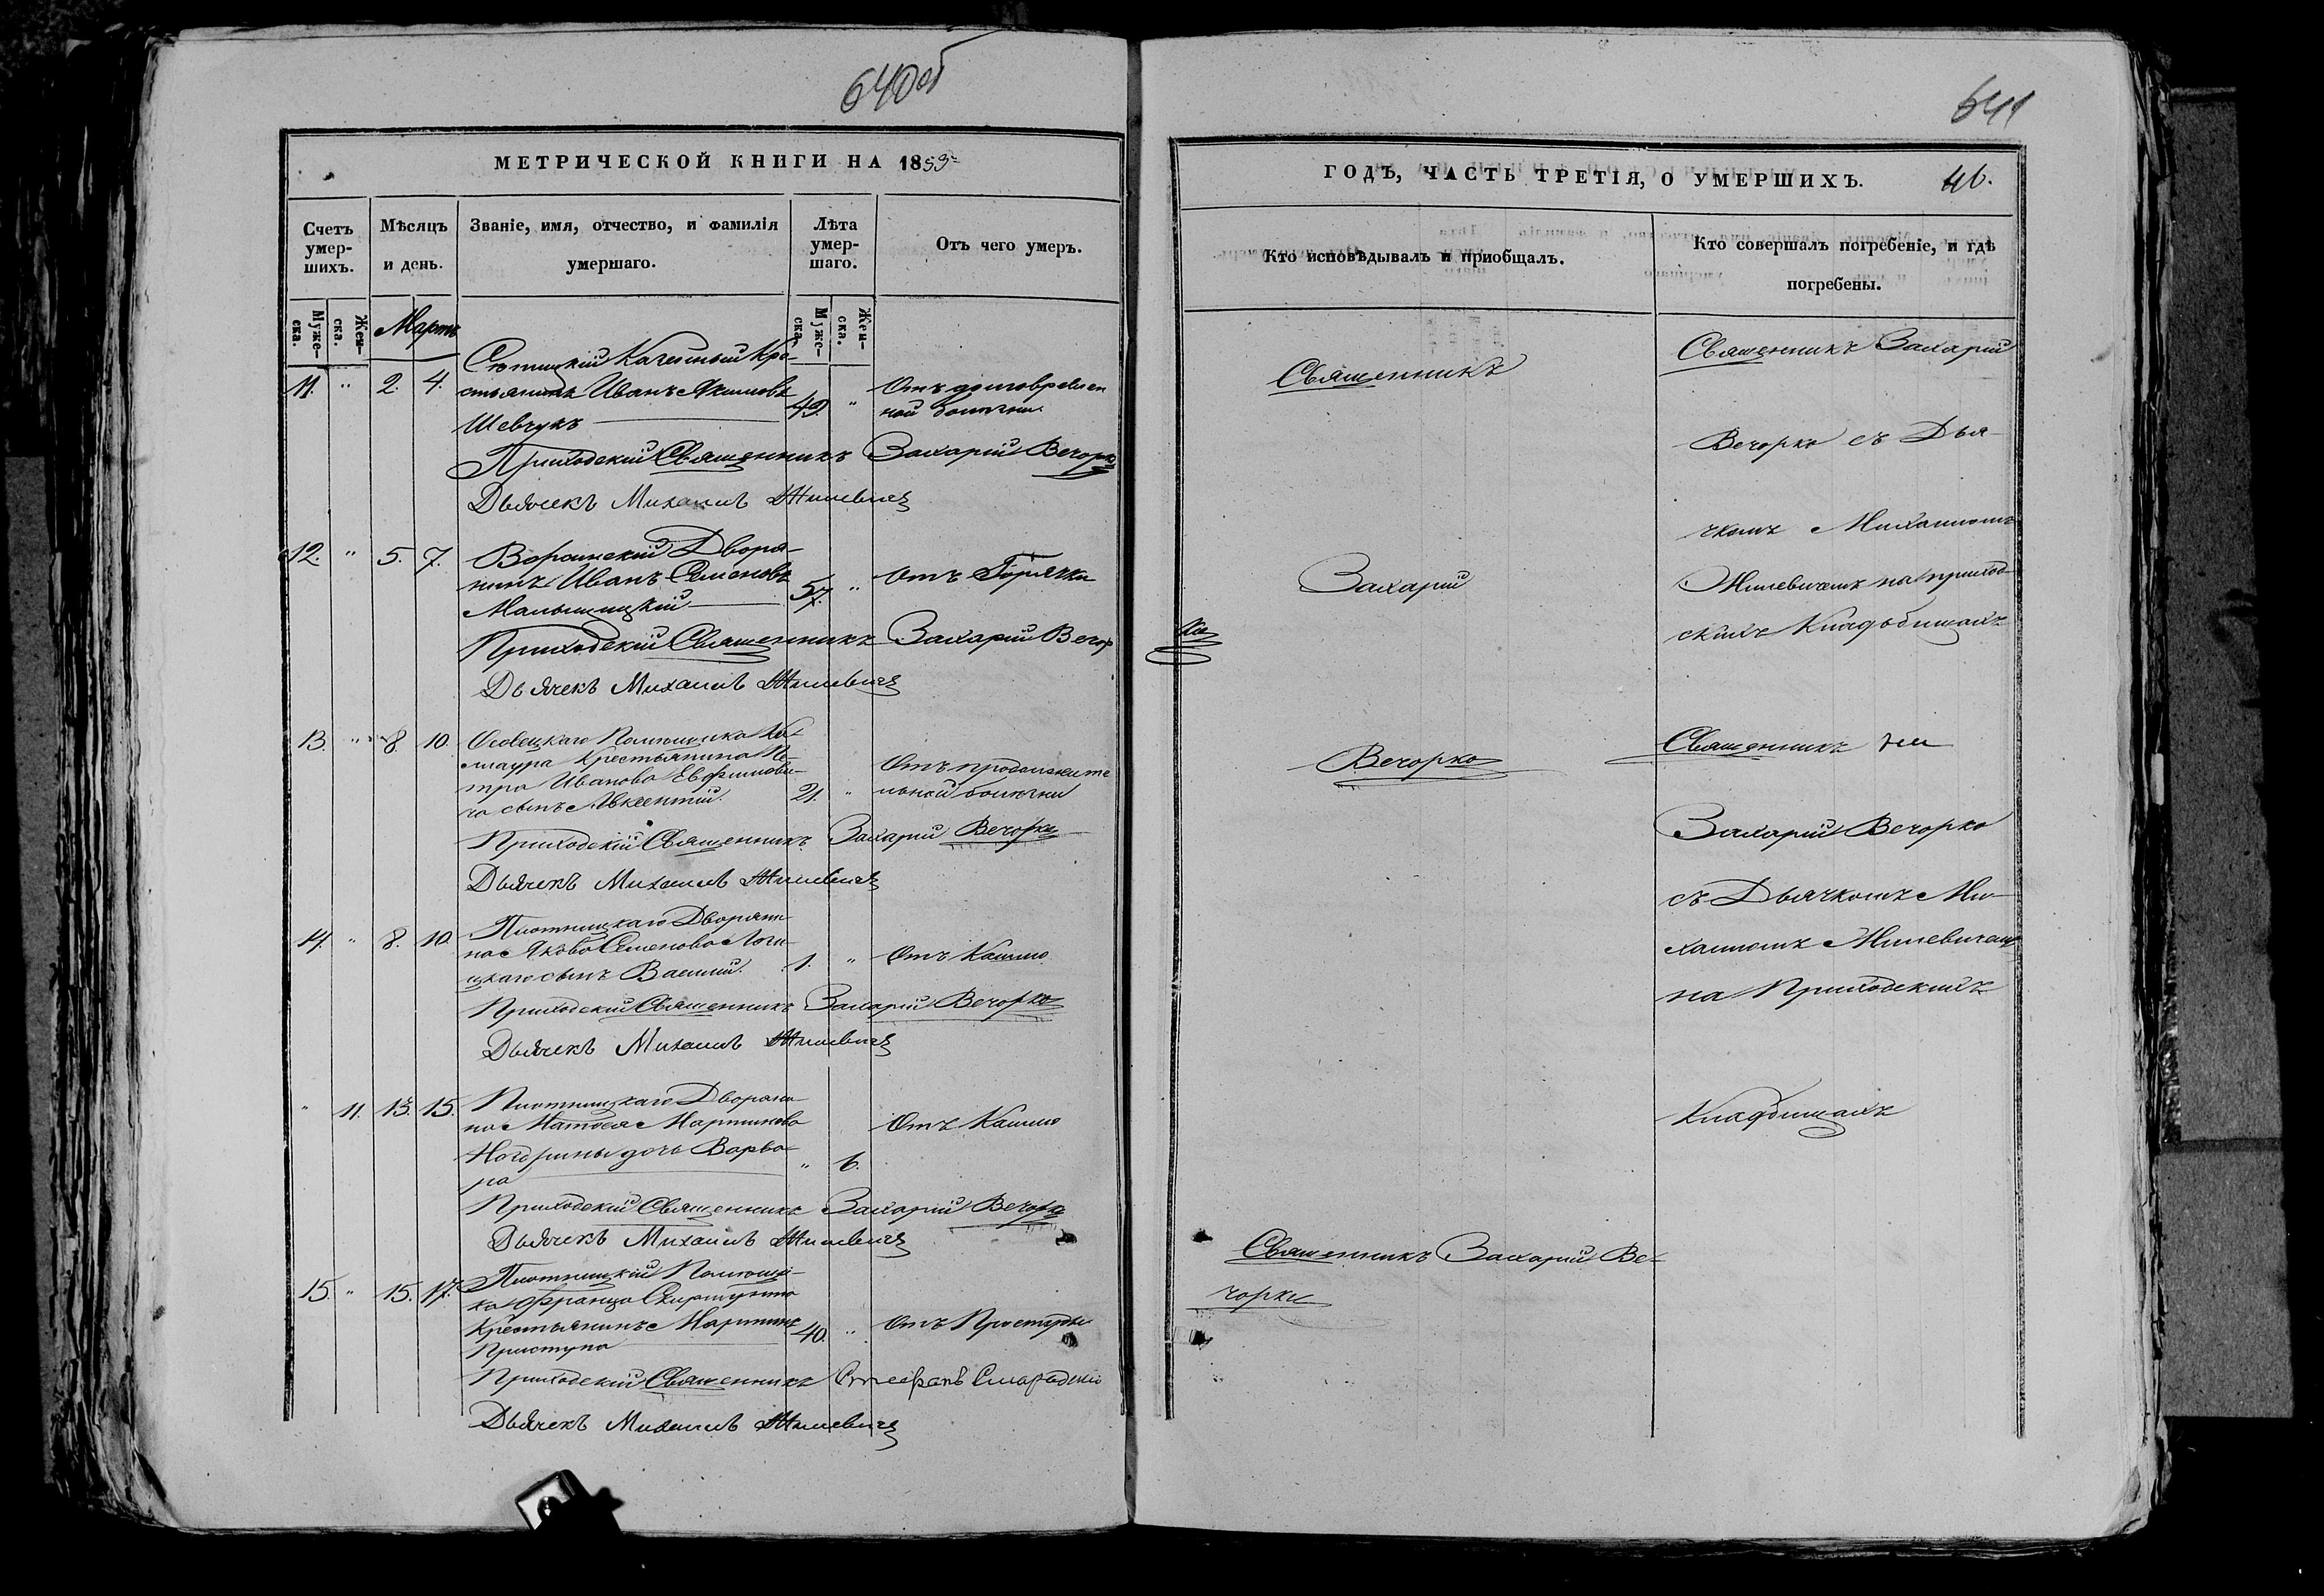 640об
МЕТРИЧЕСКОЙ КНИГИ НА 1853
Счетъ умер-шихъ.
Мѣсяцъ и день.
Званіе, имя, отчество, и фамилія умершаго.
Лѣта умер-шаго.
Отъ чего умеръ.
Муже-ска.
Жен-ска.
Мартъ
Муже-ска.
Жен-ска.
11. " 2. 4.
Казенный Кре-
стьянинъ Иванъ Якимовъ 49. "
Шевчукъ
Отъ долговремен
ной болѣзни
Приходскій Священникъ Захарій Вечорко
Дьячекъ Михаилъ Жилевичъ
12. " 5. 7. Дворя-
нинъ Иванъ Семеновъ 57. " Отъ Горячки
Малышицкій
Приходскій Священникъ Захарій Вечор
Дьячекъ Михаилъ Жилевичъ
13. " 8 10. Осовецкаго Помѣщика
Крестьянина Пе-
тра Иванова Евфимови-
ча сынъ Авксентій. 21. "
Отъ продолжите
льной болѣзни
Приходскій Священникъ Захарій Вечорко
Дьячекъ Михаилъ Жилевичъ
14. " 8. 10. Плотницкаго Дворяни-
на Якова Семенова
сынъ Василій. 1. " Отъ Кашлю
Приходскій Священникъ Захарій Вечорко
Дьячекъ Михаилъ Жилевичъ
" 11. 13. 15. Плотницкаго Дворяни-
на Матѳея Мартинова Отъ Кашлю
дочь Варва-
ра " 6.
Приходскій Священникъ Захарій Вечорко
Дьячекъ Михаилъ Жилевичъ
15. " 15. 17. Плотницкій Помѣщи-
ка Франца Скирмунта
Крестьянинъ Мартинъ 40. " Отъ Простуды
Приступа
Приходскій Священникъ Стефанъ
Дьячекъ Михаилъ Жилевичъ
641
ГОДЪ, ЧАСТЬ ТРЕТІЯ, О УМЕРШИХЪ.
46.
Кто исповѣдывалъ и пріобщалъ.
Кто совершалъ погребеніе, и гдѣ погребены.
Священникъ
Захарій
ко
Вечорко
Священникъ Захарій Ве-
чорко
Священникъ Захарій
Вечорко съ Дья-
чкомъ Михаиломъ
Жилевичемъ на приход-
скихъ Кладбищахъ
Священникъ
Захарій Вечорко
съ Дьячкомъ Ми-
хаиломъ Жилевичемъ
на Приходскихъ
Кладбищахъ